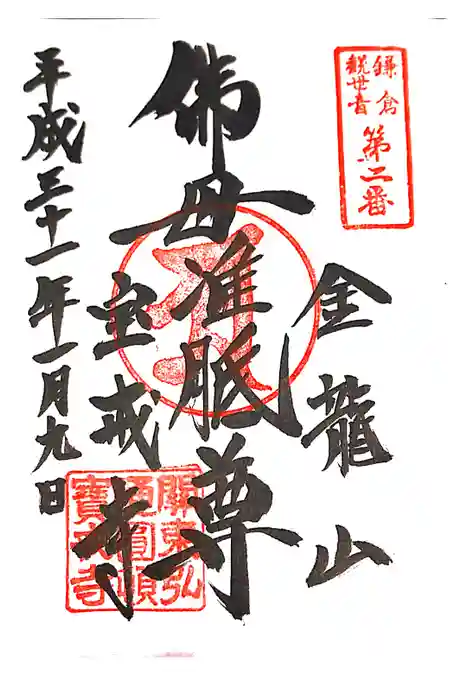 鎌倉
観世音
第二番
金龍山
佛母准胝尊
宝戒寺
平成三十一年一月九日
關東弘
通圓頓
寶戒寺